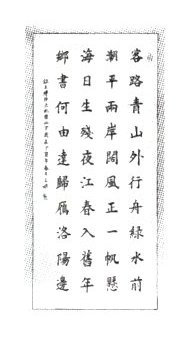 客路青山外行舟綠水前
潮平兩岸闊風正一帆懸
海日生殘夜江春入舊年
鄉書何由達歸雁洛陽邊